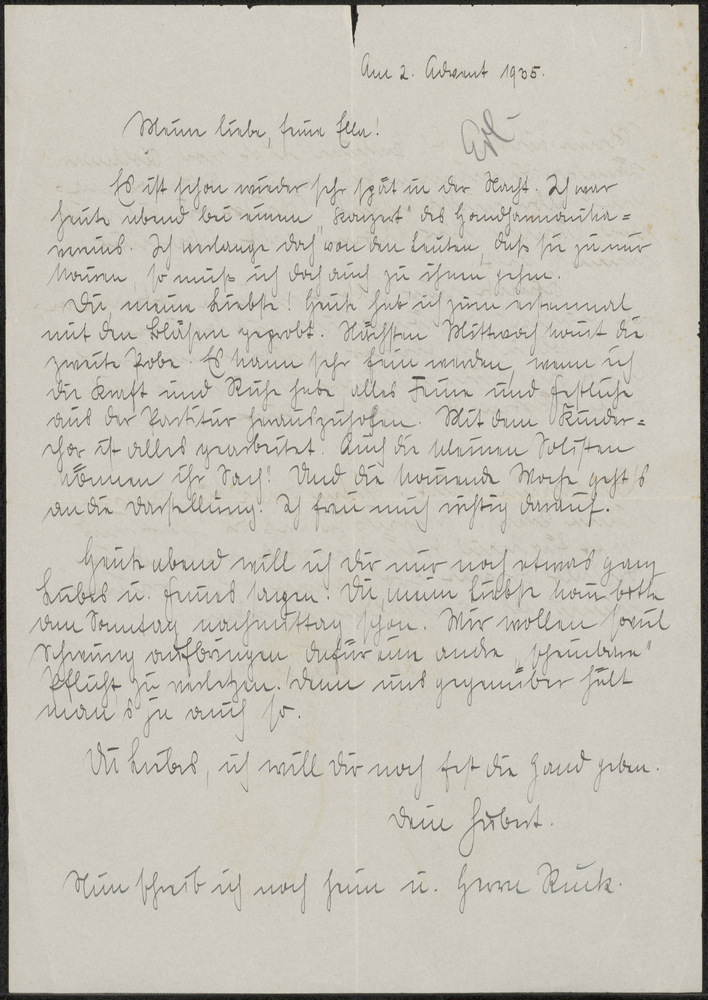 Am 2. Advent 1935.
Meine liebe, feine Ella!
Es ist schon wieder sehr spät in der Nacht. Ich war
heute abend bei einem "Konzert" des Handharmonika=
vereins. Ich verlange doch von den Leuten, daß sie zu mir
kommen, so muß ich doch auch zu ihnen gehen.
Du, meine Liebste! Heute hab ich zum erstenmal
mit den Bläsern geprobt. Nächsten Mittwoch kommt die
zweite Probe. Es kann sehr fein werden, wenn ich
die Kraft und Ruhe habe, alles Feine und Festliche
aus der Partitur herauszuholen. Mit dem Kinder=
chor ist alles gearbeitet. Auch die kleinen Solisten
können ihr Sach! Und die kommende Woche geht's
an die Darstellung. Ich freu mich richtig darauf.
Heute abend will ich dir nur noch etwas ganz
Liebes u. Feines sagen: Du, meine Liebste komm bitte
am Sonntag nachmittag schon. Wir wollen soviel
Schwung aufbringen dafür eine andre "scheinbare"
Pflicht zu verletzen. Denn uns gegenüber hält
man's ja auch so.
Du Liebes, ich will Dir noch fest die Hand geben.
Dein Hubert.
Nun schreib ich noch heim u. Herrn Ruck.